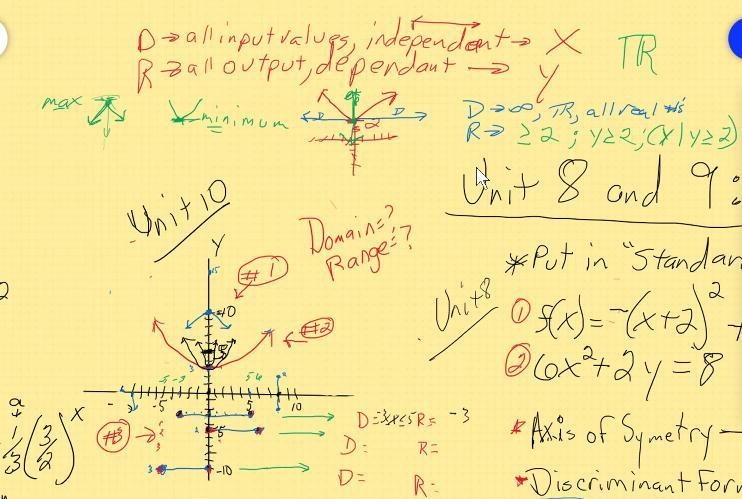 D→ all input values, independent → X
R→ all output, dependant → y
TR
max
minimum
D
D
2
D→ ∞, TR, all real #'s
R→ ≥2 ; y≥2, (x|y≥2)
Unit 8 and 9:
Unit 10
Domain=?
Range=?
*Put in "Standar
Y
#1
10
#2
Unit 8
① f(x)=-(x+2)² +
② 6x²+2y=8
2
-5
5
10
a
1/3 (3/2)^x
#3 →
-5
-10
3
D=-3≤x≤5 R= -3
D= R=
D= R=
* Axis of Symetry –
* Discriminant Form